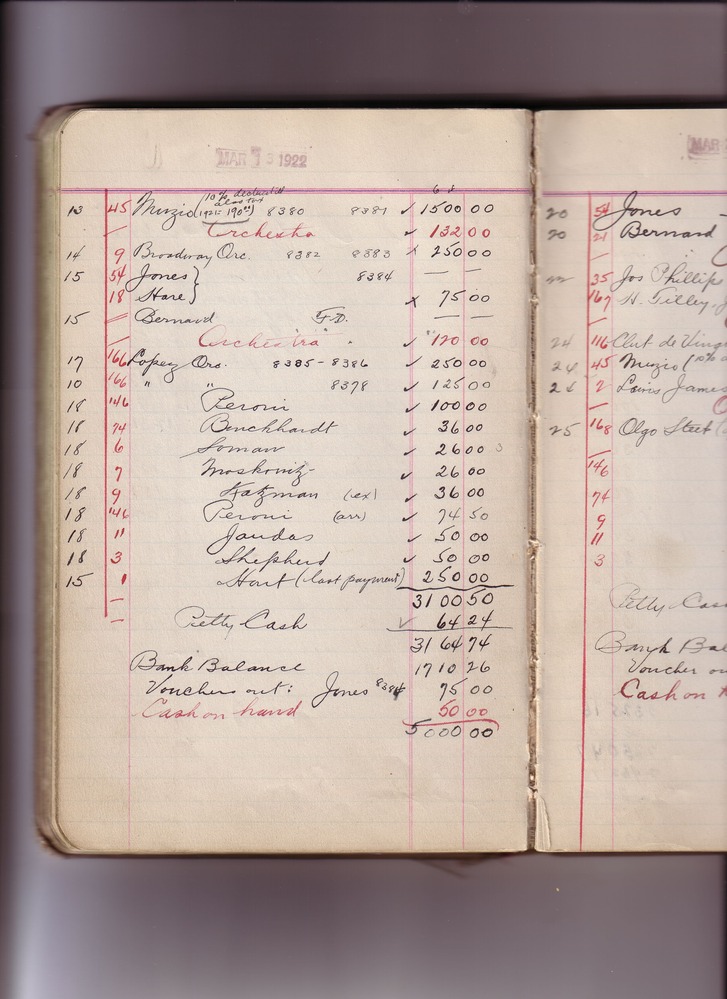 MAR 13 1922
10% deducted
also tax
13 45 Muzio (1921- 190⁰⁰) 8380 8381 ✓ 1500 00
— Orchestra ✓ 132 00
14 9 Broadway Orc. 8382 8383 x 250 00
15 54 Jones } 8384 — —
18 Hare } x 75 00
15 = Bernard F.D. — —
— Orchestra " ✓ " 120 00
17 166 Lopez Orc. 8385-8386 ✓ 250 00
10 166 " " 8378 ✓ 125 00
18 146 Peroni ✓ 100 00
18 74 Burckhardt ✓ 36 00
18 6 Soman ✓ 26 00 3
18 7 Moskowitz ✓ 26 00
18 9 Katzman (ex) ✓ 36 00
18 146 Peroni (arr) ✓ 74 50
18 11 Jaudas ✓ 50 00
18 3 Shepherd ✓ 50 00
15 1 Hout (last payment) 250 00
— 3100 50
— Petty Cash ✓ 64 24
3164 74
Bank Balance 1710 26
Vouchers out: Jones 8384 75 00
Cash on hand 50 00
5000 00
MAR
20 54 Jones
20 21 Bernard
35 Jos Phillips
167 H. Tilley
24 116 Clut de Ving
24 45 Muzio (10%
2 Lewis James
25 168 Olgo Steet
146
74
9
11
3
Petty Cas
Bank Bal
Voucher ou
Cash on h